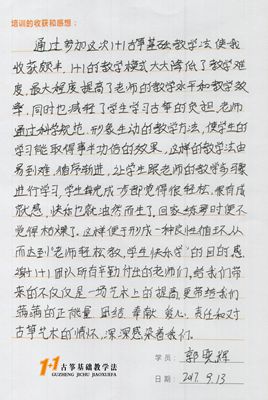 培训的收获和感想：
通过参加这次1+1古筝基础教学法使我
收获颇丰，1+1的教学模式大大降低了教学难
度，最大程度提高了老师的教学水平和教学效
率，同时也减轻了学生学习古筝的负担，老师
通过科学规范，形象生动的教学方法，使学生的
学习能取得事半功倍的效果，这样的教学法由
易到难，循序渐进，让学生跟老师的教学步骤
进行学习，学生每完成一步都觉得很轻松，很有成
就感，快乐也就油然而生了，回家练习时便不
觉得枯燥了。这样便于形成一种良性循环，从
而达到“老师轻松教，学生快乐学”的目的。感
谢1+1团队所有辛勤付出的老师们，给我们带
来的不仅仅是一场艺术上的提高，更带给我们
满满的正能量，团结、奉献、爱心、责任和对
古筝艺术的情怀，深深感染着我们。
1+1 古筝基础教学法
GUZHENG JICHU JIAOXUEFA
学员：郭
日期：2017.9.13